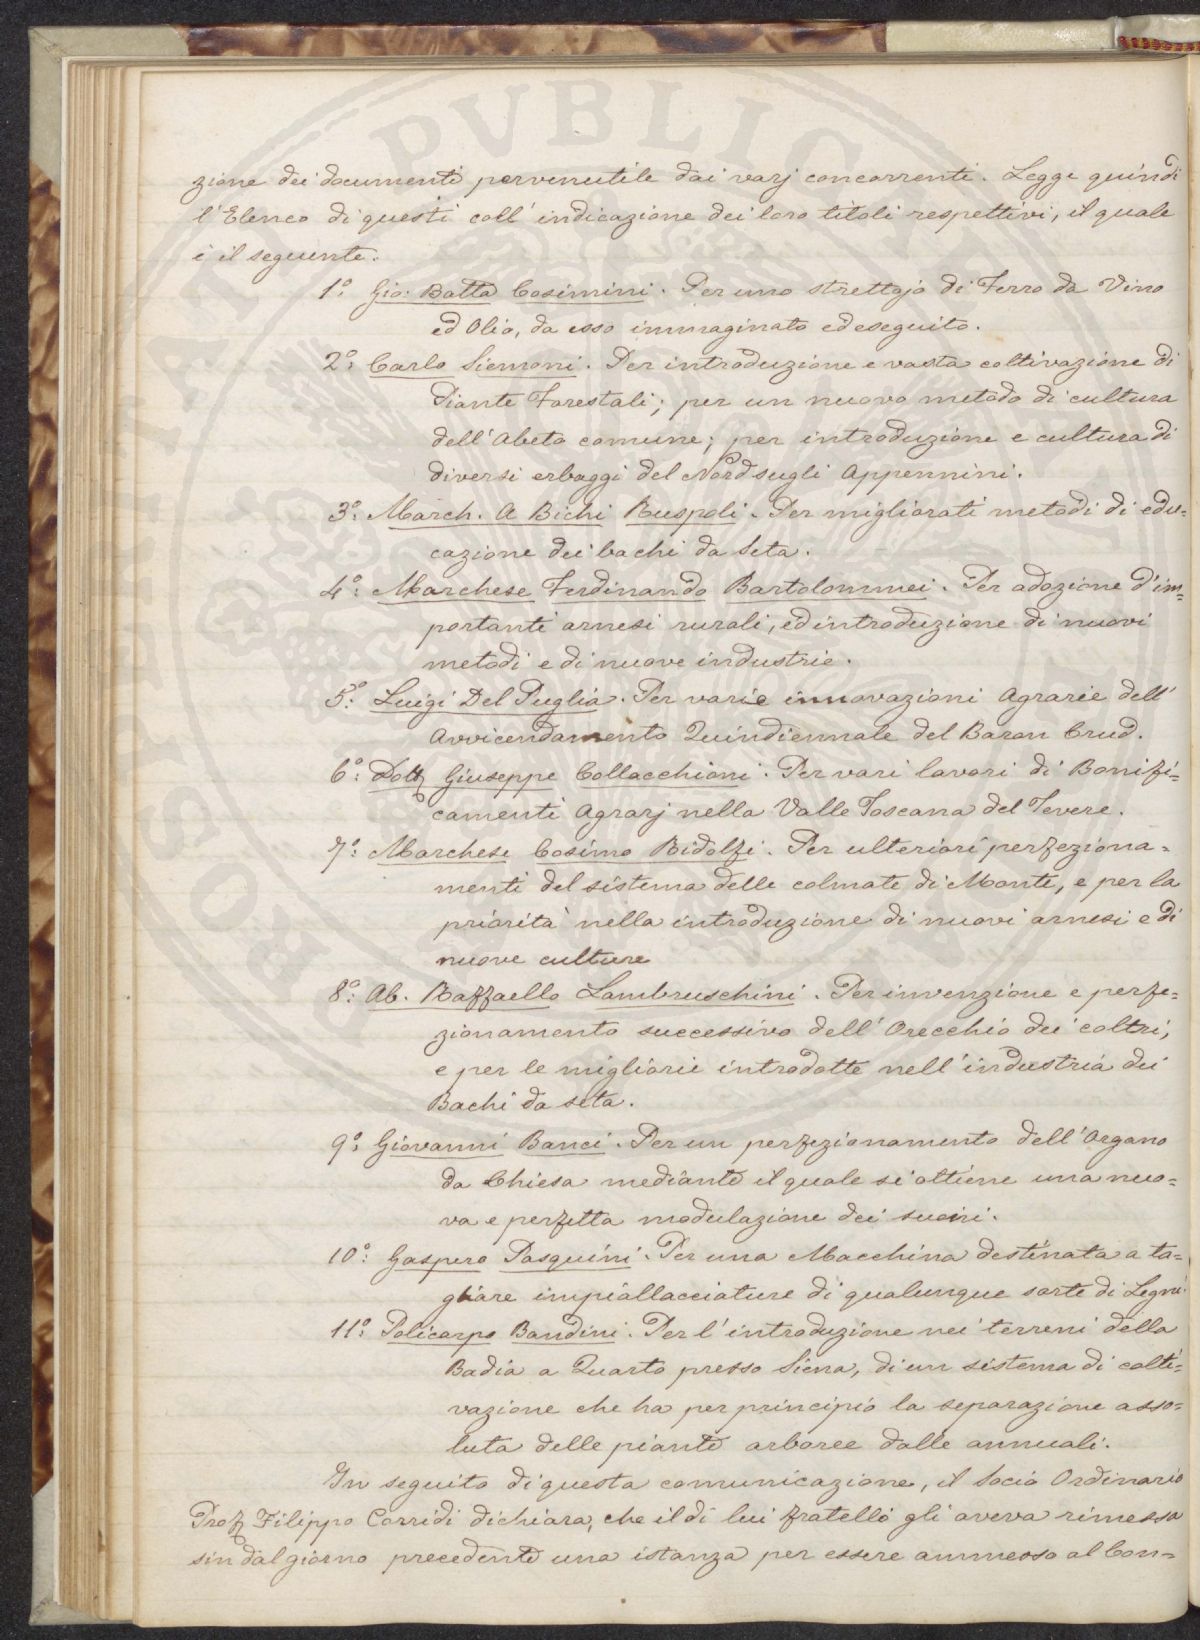 zione dei documenti pervenutile dai varj concorrenti. Legge quindi
l'Elenco di questi coll'indicazione dei loro titoli respettivi, il quale
è il seguente.
1º: Gio: Batta Cosimini. Per uno strettojo di Ferro da Vino
ed Olio, da esso immaginato ed eseguito.
2º: Carlo Siemoni. Per introduzione e vasta coltivazione di
Piante Forestali; per un nuovo metodo di cultura
dell'Abeto comune; per introduzione e cultura di
diversi erbaggi del Nord sugli Appennini.
3º: March. A Bichi Ruspoli. Per migliorati metodi di edu=
cazione dei bachi da Seta.
4º: Marchese Ferdinando Bartolommei. Per adozione d'im=
portanti arnesi rurali, ed introduzione di nuovi
metodi e di nuove industrie.
5º: Luigi Del Puglia. Per varie innovazioni Agrarie dell'
Avvicendamento Quindiennale del Baron Crud.
6º: Dott Giuseppe Collacchioni. Per vari lavori di Bonifi=
camenti Agrarj nella Valle Toscana del Tevere.
7º: Marchese Cosimo Ridolfi. Per ulteriori perfeziona=
menti del sistema delle colmate di Monte, e per la
priorità nella introduzione di nuovi arnesi e di
nuove culture
8º: Ab. Raffaello Lambruschini. Per invenzione e perfe=
zionamento successivo dell'Orecchio dei coltri,
e per le migliorie introdotte nell'industria dei
Bachi da seta.
9º: Giovanni Banci. Per un perfezionamento dell'Organo
da Chiesa mediante il quale si ottiene una nuo=
va e perfetta modulazione dei suoni.
10º: Gaspero Pasquini. Per una Macchina destinata a ta=
gliare impiallacciature di qualunque sorte di Legni.
11º: Policarpo Bandini. Per l'introduzione nei terreni della
Badia a Quarto presso Siena, di un sistema di colti=
vazione che ha per principio la separazione asso=
luta delle piante arboree dalle annuali.
In seguito di questa comunicazione, il Socio Ordinario
Prof Filippo Corridi dichiara, che il di lui fratello gli aveva rimessa
sin dal giorno precedente una istanza per essere ammesso al Con=